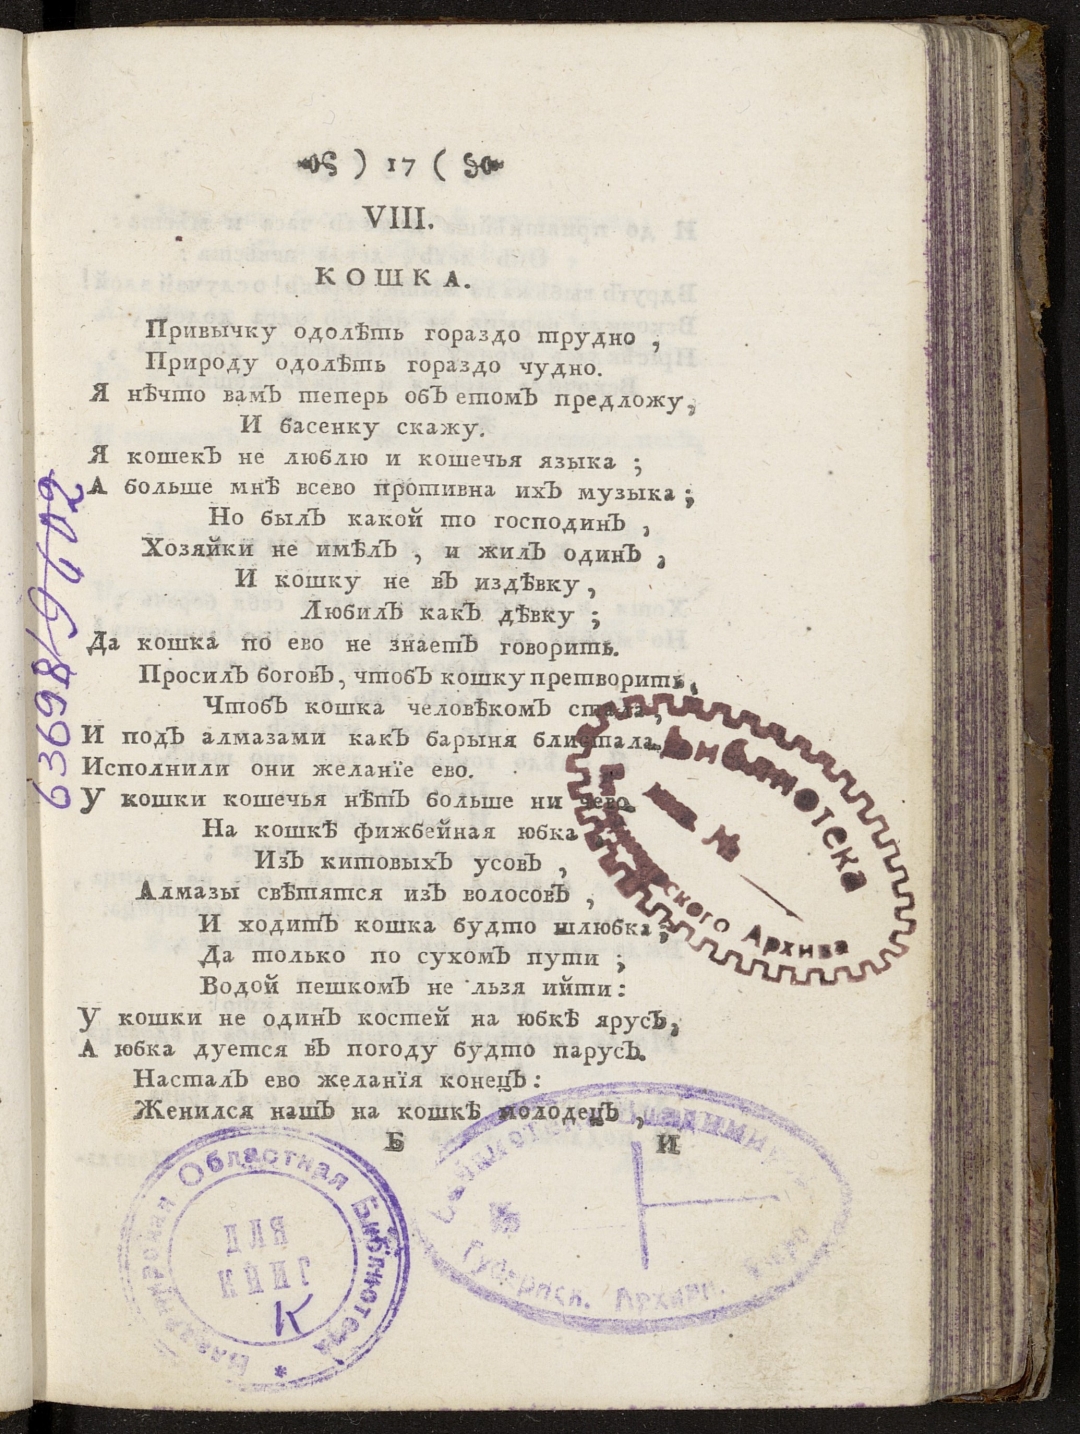 ) 17 (
VIII.
КОШКА.
Привычку одолѣть гораздо трудно,
Природу одолѣть гораздо чудно.
Я нѣчто вамЪ теперь обЪ етомЪ предложу,
И басенку скажу.
Я кошекЪ не люблю и кошечья языка;
А больше мнѣ всево противна ихЪ музыка;
Но былЪ какой то господинЪ,
Хозяйки не имѣлЪ, и жилЪ одинЪ,
И кошку не вЪ издѣвку,
ЛюбилЪ какЪ дѣвку;
Да кошка по ево не знаетЪ говорить.
ПросилЪ боговЪ, чтобЪ кошку претворить,
ЧтобЪ кошка человѣкомЪ стала,
И подЪ алмазами какЪ барыня блистала.
Исполнили они желанїе ево.
У кошки кошечья нѣтЪ больше ни чево.
На кошкѣ фижбейная юбка
ИзЪ китовыхЪ усовЪ,
Алмазы свѣтятся изЪ волосовЪ,
И ходитЪ кошка будто шлюбка,
Да только по сухомЪ пути;
Водой пешкомЪ не льзя ийти:
У кошки не одинЪ костей на юбкѣ ярусЪ,
А юбка дуется вЪ погоду будто парусЪ.
НасталЪ ево желанїя конецЪ:
Женился нашЪ на кошкѣ молодецЪ,
Б И
63698/
Библиотека
Архива
Областная Библиотека
ДЛЯ
Губернск. Архивн. Бюро